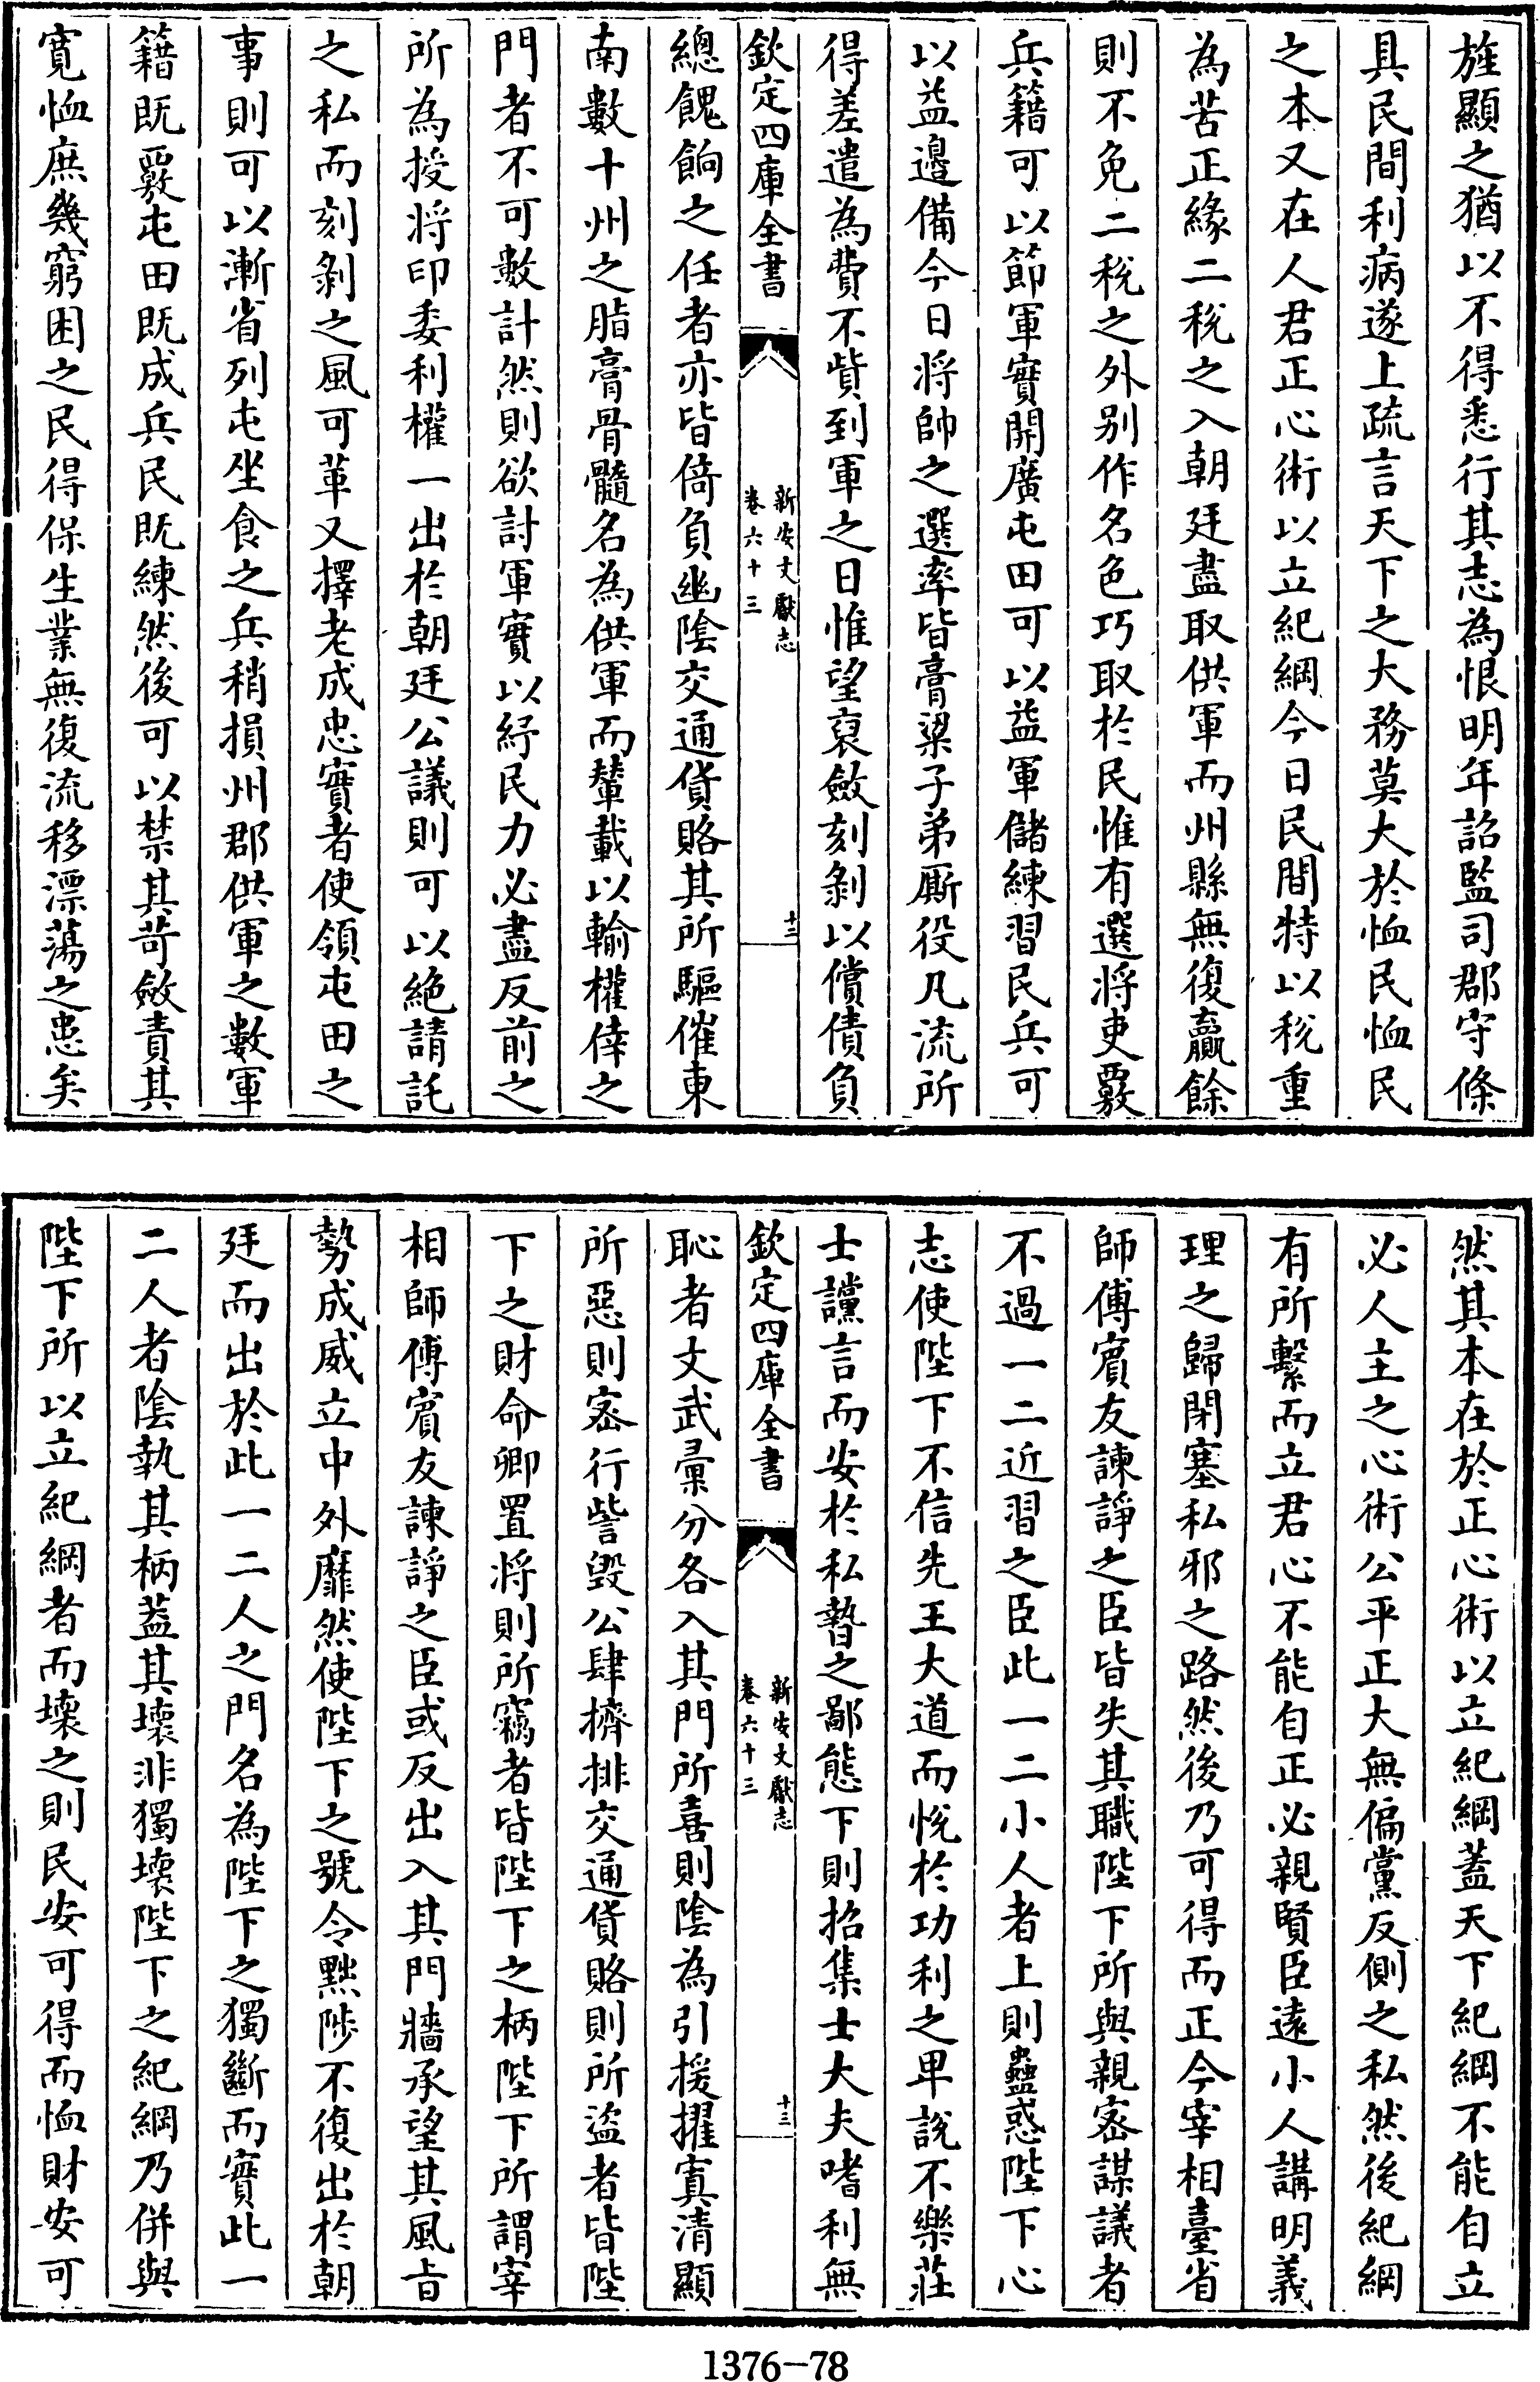 旌顯之猶以不得悉行其志為恨明年詔監司郡守條
具民間利病遂上疏言天下之大務莫大於恤民恤民
之本又在人君正心術以立紀綱今日民間特以稅重
為苦正緣二稅之入朝廷盡取供軍而州縣無復贏餘
則不免二稅之外别作名色巧取於民惟有選將吏覈
兵籍可以節軍實開廣屯田可以益軍儲練習民兵可
以益邊備今日將帥之選率皆膏粱子弟厮役凡流所
得差遣為費不貲到軍之日惟望裒斂刻剝以償債負
欽定四庫全書
新安文獻志
卷六十三
十三
總餽餉之任者亦皆倚負幽陰交通貨賂其所驅催東
南數十州之脂膏骨髓名為供軍而輦載以輸權倖之
門者不可數計然則欲討軍實以紓民力必盡反前之
所為授將印委利權一出於朝廷公議則可以絶請託
之私而刻剝之風可革又擇老成忠實者使領屯田之
事則可以漸省列屯坐食之兵稍損州郡供軍之數軍
籍既覈屯田既成兵民既練然後可以禁其苛斂責其
寛恤庶幾窮困之民得保生業無復流移漂蕩之患矣
然其本在於正心術以立紀綱蓋天下紀綱不能自立
必人主之心術公平正大無偏黨反側之私然後紀綱
有所繫而立君心不能自正必親賢臣遠小人講明義
理之歸閉塞私邪之路然後乃可得而正今宰相臺省
師傅賓友諫諍之臣皆失其職陛下所與親密謀議者
不過一二近習之臣此一二小人者上則蠱惑陛下心
志使陛下不信先王大道而悅於功利之卑說不樂莊
士讜言而安於私暬之鄙態下則招集士大夫嗜利無
欽定四庫全書
新安文獻志
卷六十三
十三
恥者文武彚分各入其門所喜則陰為引援擢寘清顯
所惡則密行訾毁公肆擠排交通貨賂則所盜者皆陛
下之財命卿置將則所竊者皆陛下之柄陛下所謂宰
相師傅賓友諫諍之臣或反出入其門牆承望其風㫖
勢成威立中外靡然使陛下之號令黜陟不復出於朝
廷而出於此一二人之門名為陛下之獨斷而實此一
二人者陰執其柄蓋其壞非獨壞陛下之紀綱乃併與
陛下所以立紀綱者而壞之則民安可得而恤財安可
1376-78